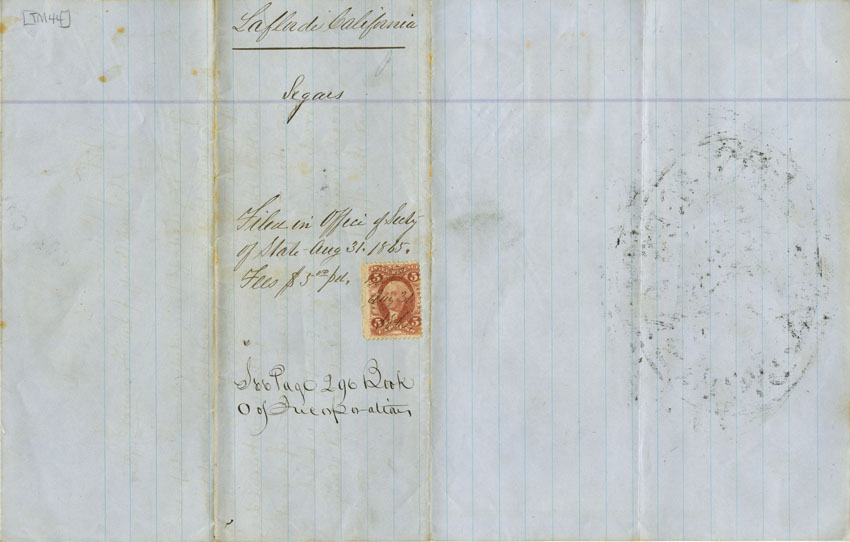 [TM44]
La flor de California
Segars
Filed in Office of Secty
of State Aug 31. 1865.
Fees $5 00 pd.
5 5
Aug 31
5 5
See Page 290 Book
O of Incorporations